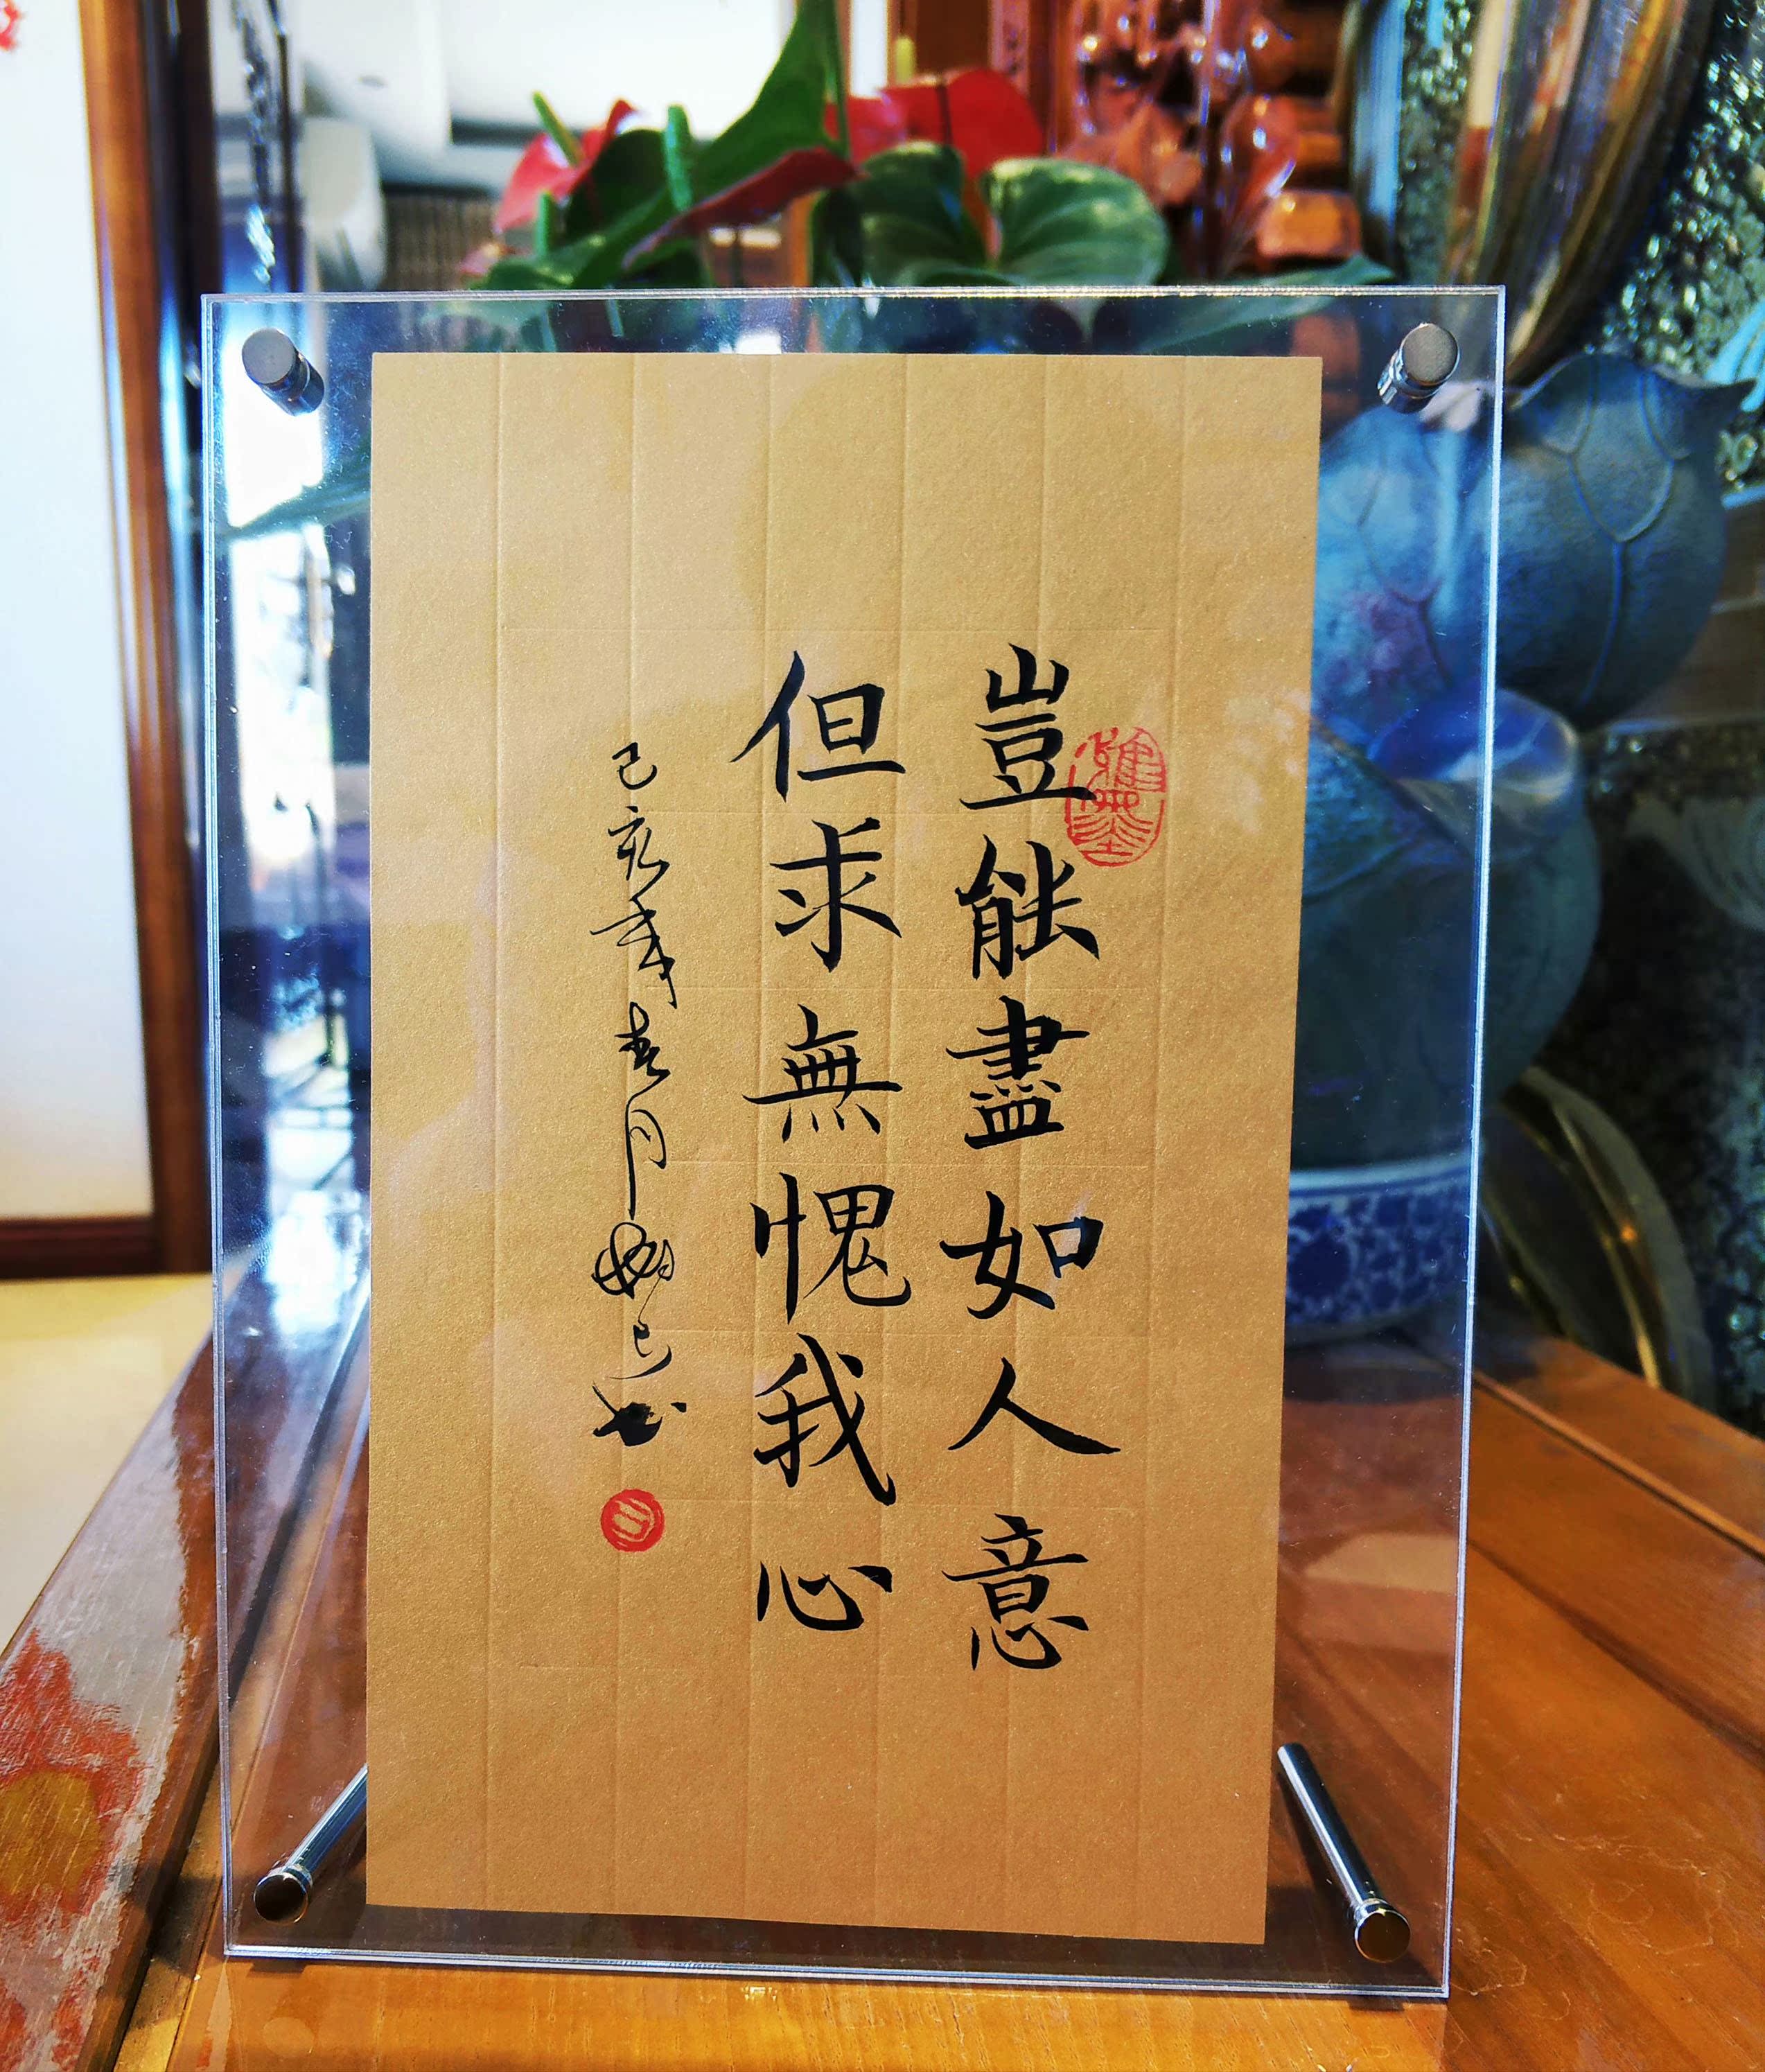 豈能盡如人意
但求無愧我心
己亥年春月